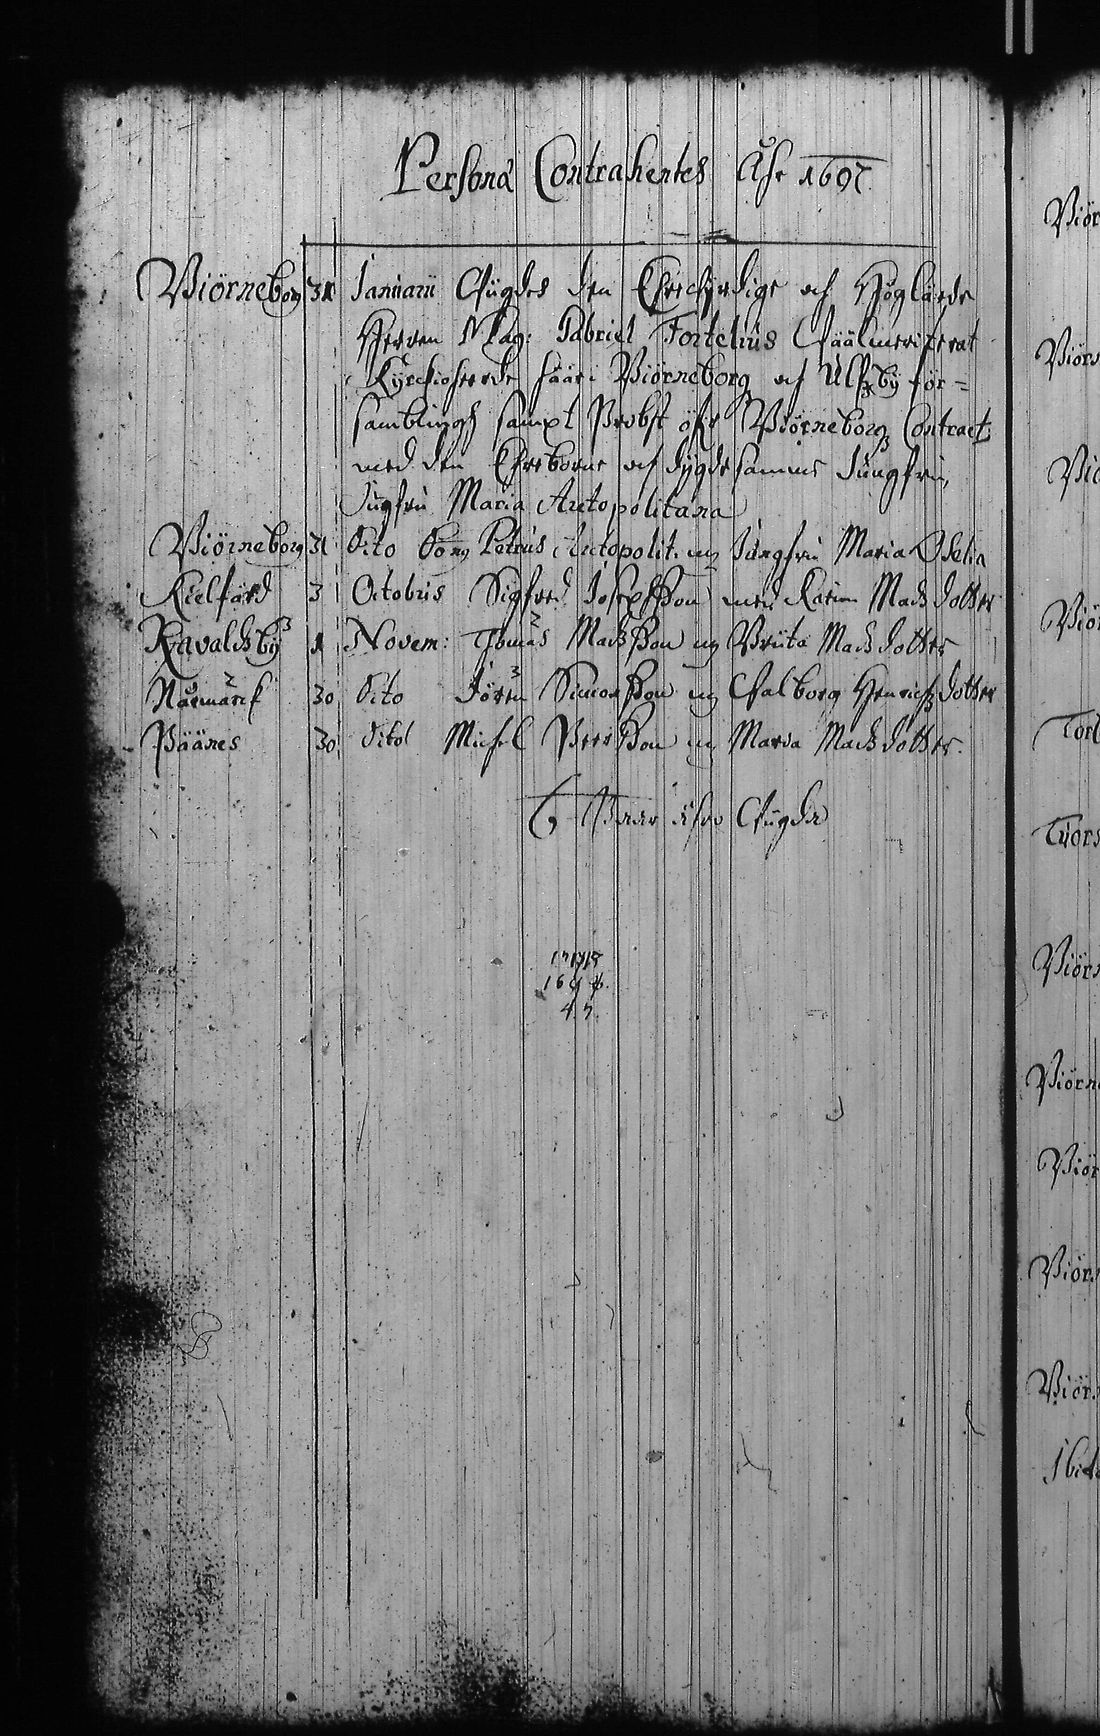 Personæ Contrahentes Åhr 1697
Biörneborg 31 Januarii Wigdes den Ehrewyrdige och Höglärde
Herren Mag: Gabriel Fortelius Wäälmeriterat
Kyrckioherde här i Biörneborg och Ulfzby för=
samblingh sampt Probst öfr Biörneborgz Contract
med den Ehreborne och dygdesamme Jungfru,
Jugfru Maria Arctopolitana
Biörneborg 31 Dito Petrus Arctopolit: Jungfru Maria
Kielfiärd 3 Octobris Sigfred Josephsson med Karin Madsdotter
Ravaldsby 1 Novem: Thomas Madsson Brita Madsdotter
Nårmarck 30 Dito Jören Simonsson Walborg Henrichzdotter
Påånes 30 Dito Michel Persson Maria Madsdotter.
6 Paar ähro Wigda
47
Biör
Biörn
Bio
Biör
Torb
Tuors
Biörn
Biörne
Biör
Biörn
Biörn
Ibid